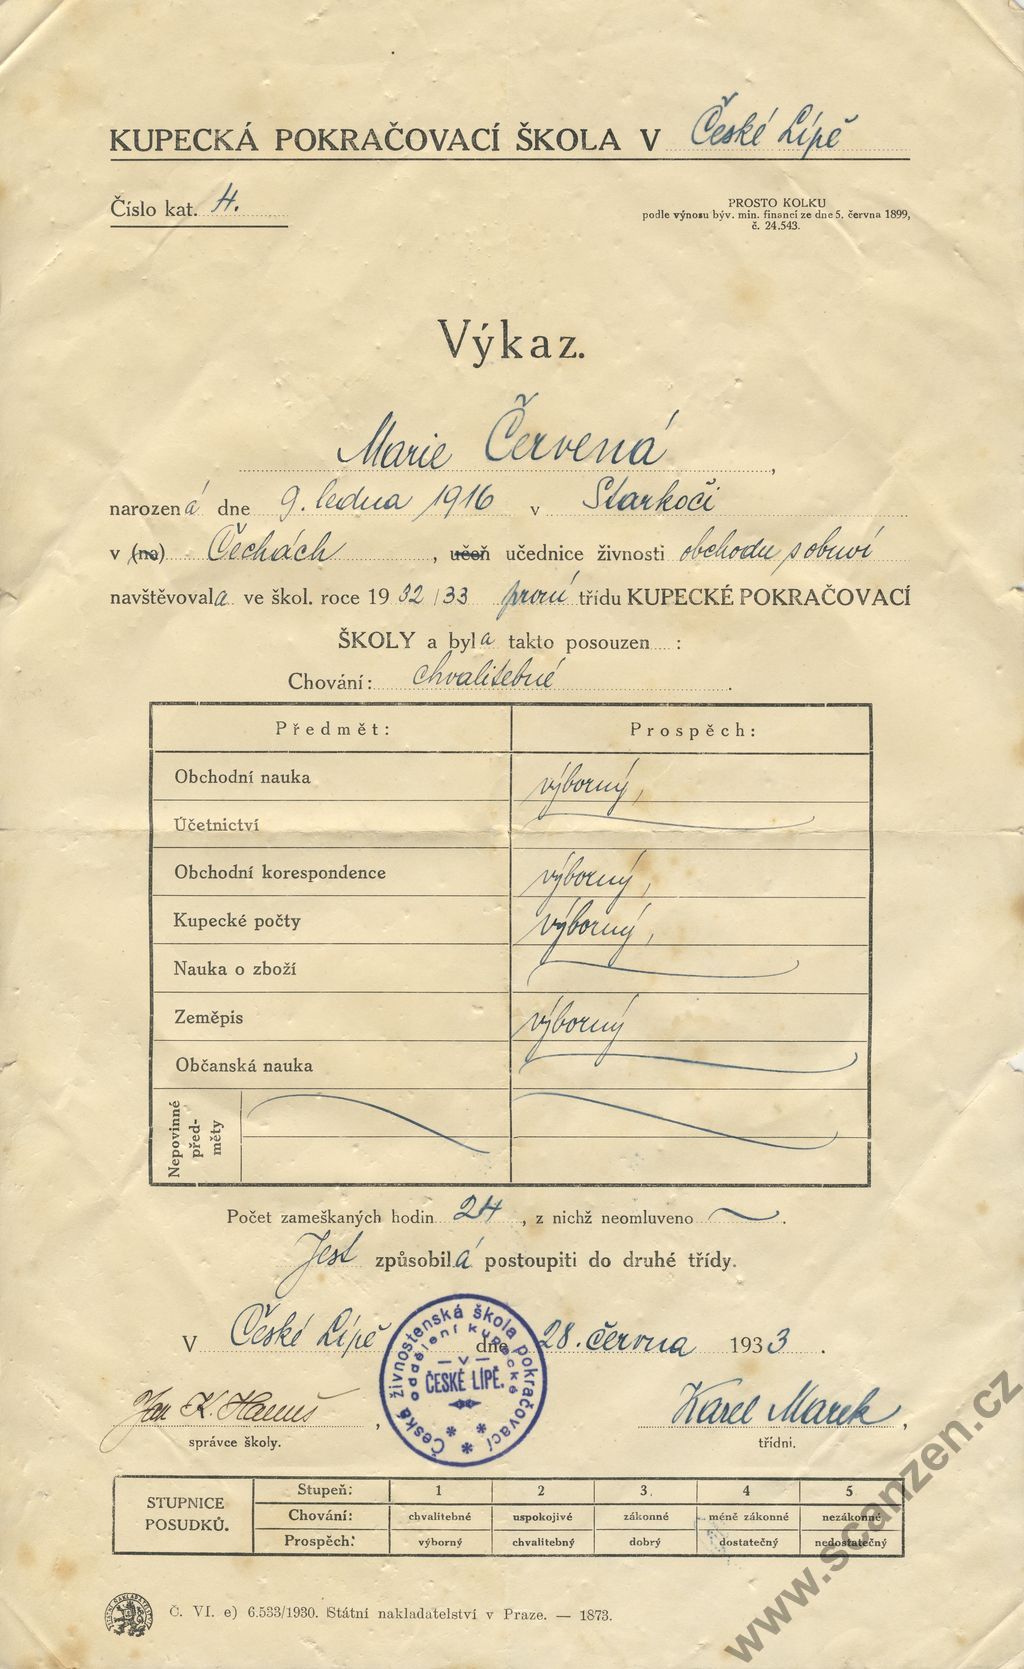 KUPECKÁ POKRAČOVACÍ ŠKOLA V České Lípě
Číslo kat. 4.
PROSTO KOLKU
podle výnosu býv. min. financí ze dne 5. června 1899,
č. 24.543.
Výkaz.
Marie Červená,
narozená dne 9. ledna 1916 v Starkoči
v (na) Čechách, učeň učednice živnosti obchodu s obuví
navštěvovala ve škol. roce 1932/33 první třídu KUPECKÉ POKRAČOVACÍ
ŠKOLY a byla takto posouzen :
Chování: chvalitebné.
Předmět: Prospěch:
Obchodní nauka výborný,
Účetnictví
Obchodní korespondence výborný,
Kupecké počty výborný,
Nauka o zboží
Zeměpis výborný
Občanská nauka
Nepovinné
před-
měty
Počet zameškaných hodin 24, z nichž neomluveno .
Jest způsobilá postoupiti do druhé třídy.
V České Lípě dne 28. června 1933.
Česká živnostenská škola pokračovací
oddělení kupecké
– V –
ČESKÉ LÍPĚ.
Jan K. Hanuš, Karel Marek,
správce školy. třídní.
STUPNICE
POSUDKŮ.
Stupeň: 1 2 3. 4 5
Chování: chvalitebné uspokojivé zákonné méně zákonné nezákonné
Prospěch: výborný chvalitebný dobrý dostatečný nedostatečný
Č. VI. e) 6.533/1930. Státní nakladatelství v Praze. — 1873.
www.scanzen.cz